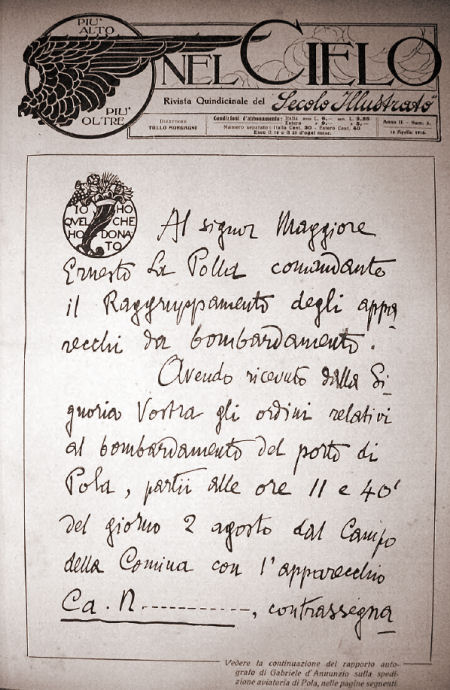 PIU' ALTO
PIU' OLTRE
NEL CIELO
Rivista Quindicinale del "Secolo Illustrato"
Direttore
TULLO MORGAGNI
Condizioni d'abbonamento: Italia
Estero
Numero separato: Italia Cent. 30 - Estero Cent. 40
Esce il 10 e il 25 d'ogni mese.
Anno II - Num.
Aprile
IO HO
QUEL CHE
HO DONATO
Al signor Maggiore
Ernesto La Polla comandante
il Raggruppamento degli appa-
recchi da bombardamento.
Avendo ricevuto dalla Si-
gnoria Vostra gli ordini relativi
al bombardamento del porto di
Pola, partii alle ore 11 e 40'
del giorno 2 agosto dal Campo
della Comina con l'apparecchio
Ca. N. ----------, contrassegna
Vedere la continuazione del rapporto auto-
grafo di Gabriele d'Annunzio sulla spedi-
zione aviatoria di Pola, nelle pagine seguenti.